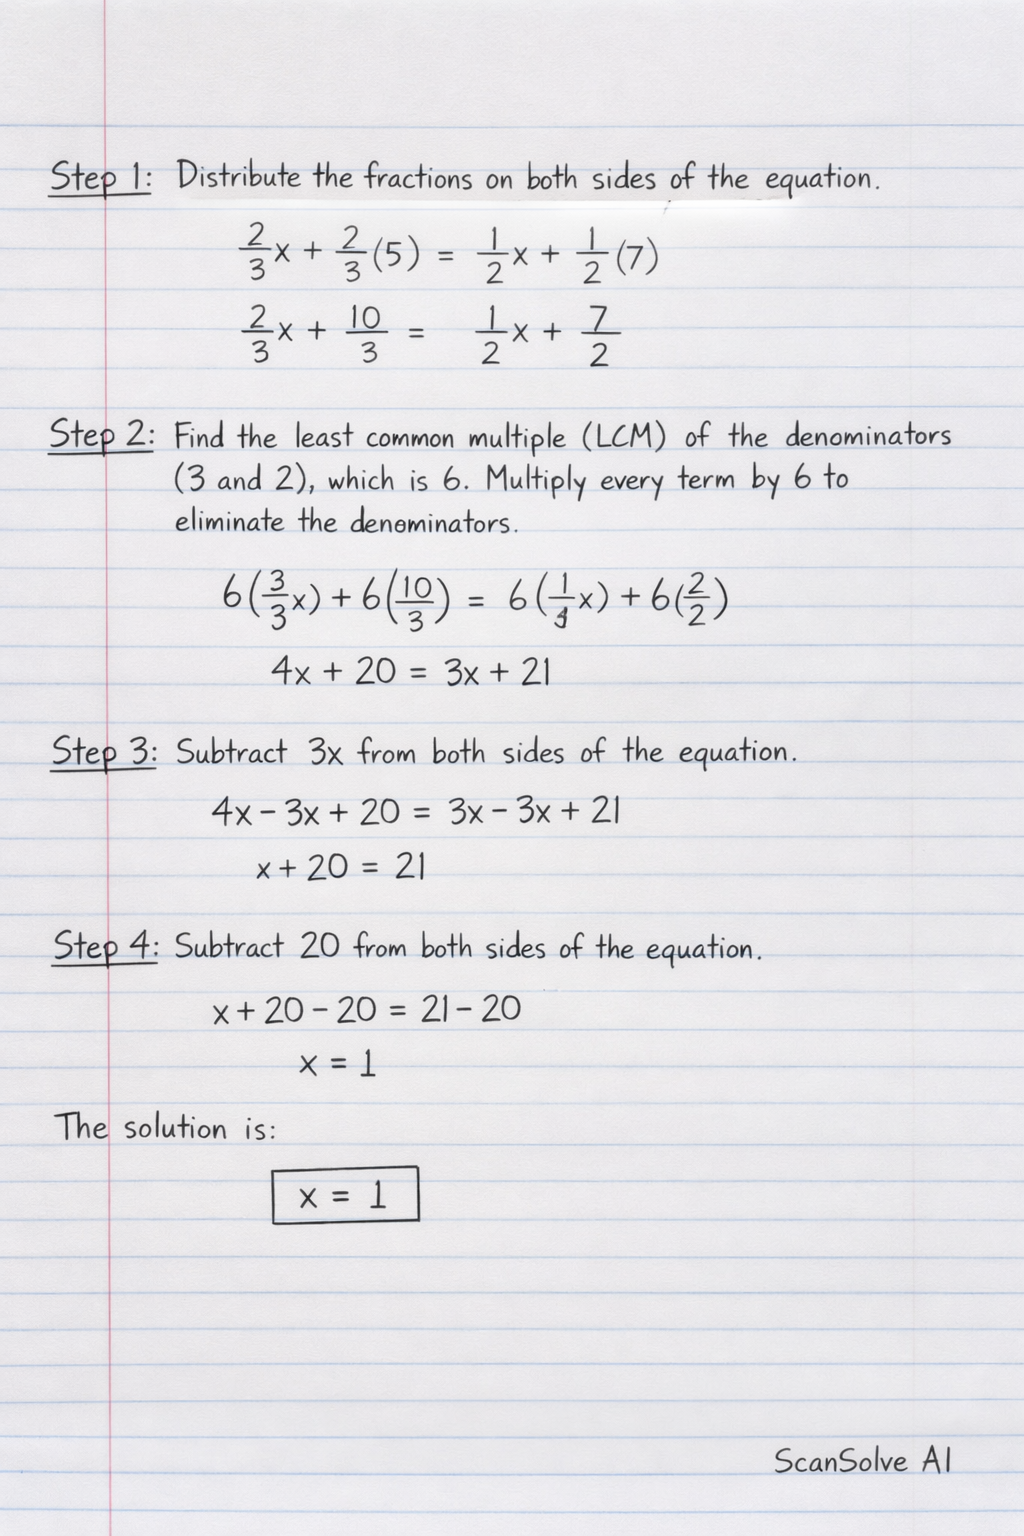 Step 1: Distribute the fractions on both sides of the equation.
2/3 x + 2/3 (5) = 1/2 x + 1/2 (7)
2/3 x + 10/3 = 1/2 x + 7/2
Step 2: Find the least common multiple (LCM) of the denominators
(3 and 2), which is 6. Multiply every term by 6 to
eliminate the denominators.
6(3/3 x) + 6(10/3) = 6(1/ x) + 6(2/2)
4x + 20 = 3x + 21
Step 3: Subtract 3x from both sides of the equation.
4x - 3x + 20 = 3x - 3x + 21
x + 20 = 21
Step 4: Subtract 20 from both sides of the equation.
x + 20 - 20 = 21 - 20
x = 1
The solution is:
x = 1
ScanSolve AI